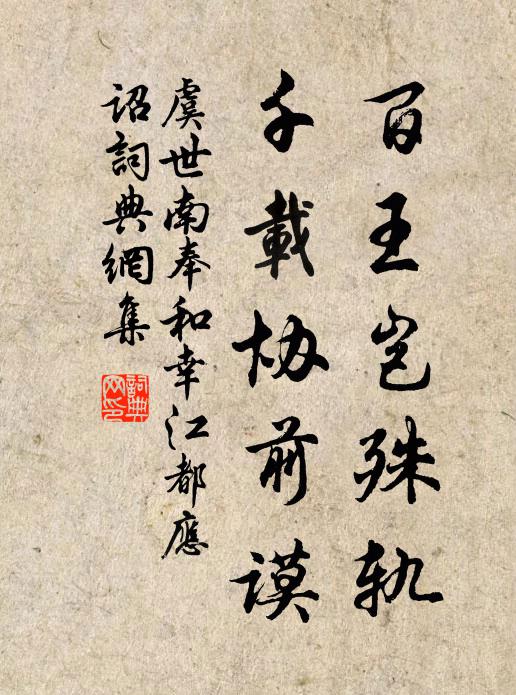 百王岂殊轨
千載协前谟
虞世南奉和幸江都應
詔詞典網集
詞典
网印